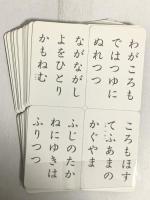 わがころも
ではつゆに
ぬれつつ
ながながし
よをひとり
かもねむ
ころもほす
てふあまの
かぐやま
ふじのたか
ねにゆきは
ふりつつ